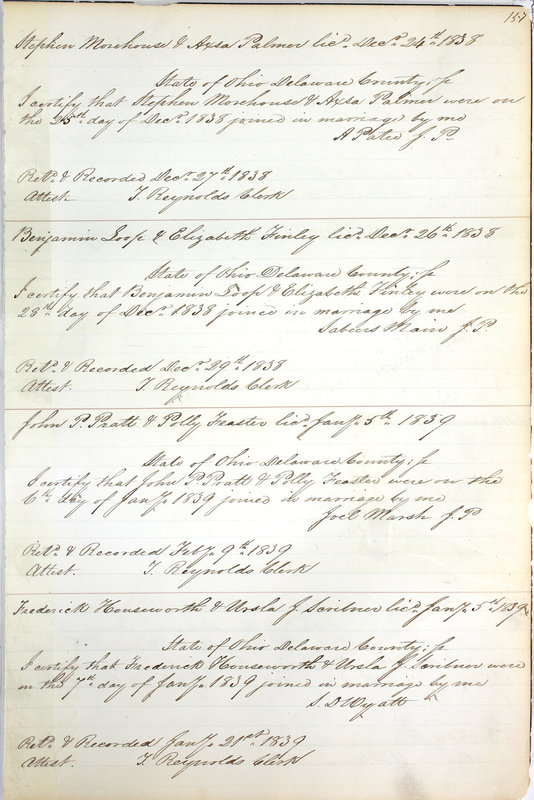 157
Stephen Morehouse & Axsa Palmer licd. Decr. 24th 1838
State of Ohio Delaware County; ss
I certify that Stephen Morehouse & Axsa Palmer were on
the 25th day of Decr. 1838 joined in marriage by me
A Pated J. P.
Retd. & Recorded Decr. 27th 1838
Attest. T. Reynolds Clerk
Benjamin Loop & Elizabeth Finley licd. Decr. 26th 1838
State of Ohio Delaware County; ss
I certify that Benjamin Loop & Elizabeth Finley were on the
28th day of Decr. 1838 joined in marriage by me
Sabeers Main J. P.
Retd. & Recorded Decr. 29th 1838
Attest. T. Reynolds Clerk
John P. Pratt & Polly Feaster licd. Jany. 5th 1839
State of Ohio Delaware County; ss
I certify that John P. Pratt & Polly Feaster were on the
6th day of Jany. 1839 joined in marriage by me
Joel Marsh J. P.
Retd. & Recorded Feby. 9th 1839
Attest. T. Reynolds Clerk
Frederick Houseworth & Ursla J. Scribner licd. Jany. 5th 1839
State of Ohio Delaware County; ss
I certify that Frederick Houseworth & Ursla J. Scribner were
on the 7th day of Jany. 1839 joined in marriage by me
S. D Wyatt
Retd. & Recorded Jany. 21st 1839
Attest. T. Reynolds Clerk